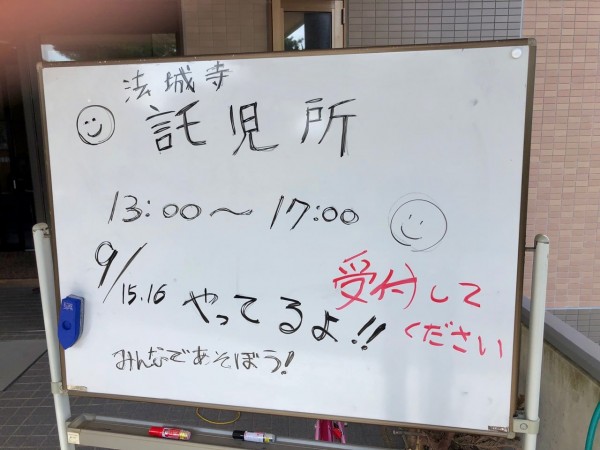 法城寺
託児所
13:00〜17:00
9/15.16 やってるよ!!
受付して
ください
みんなであそぼう!